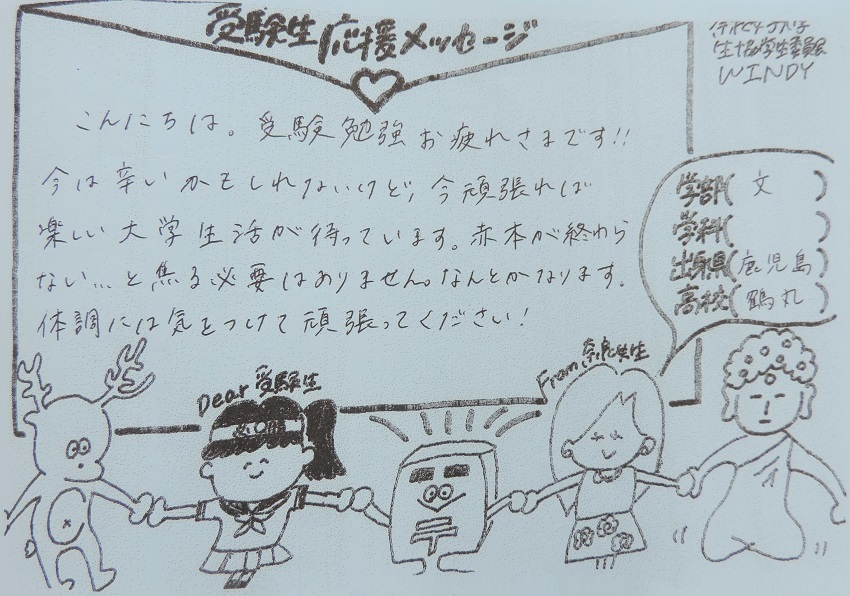 受験生応援メッセージ
生協学生委員会
WINDY
こんにちは。受験勉強お疲れさまです!!
今は辛いかもしれないけど、今頑張れば
楽しい大学生活が待っています。赤本が終わら
ない…と焦る必要はありません。なんとかなります。
体調には気をつけて頑張ってください!
学部(文)
学科( )
出身県(鹿児島)
高校(鶴丸)
Dear 受験生
From 奈良女生
〒